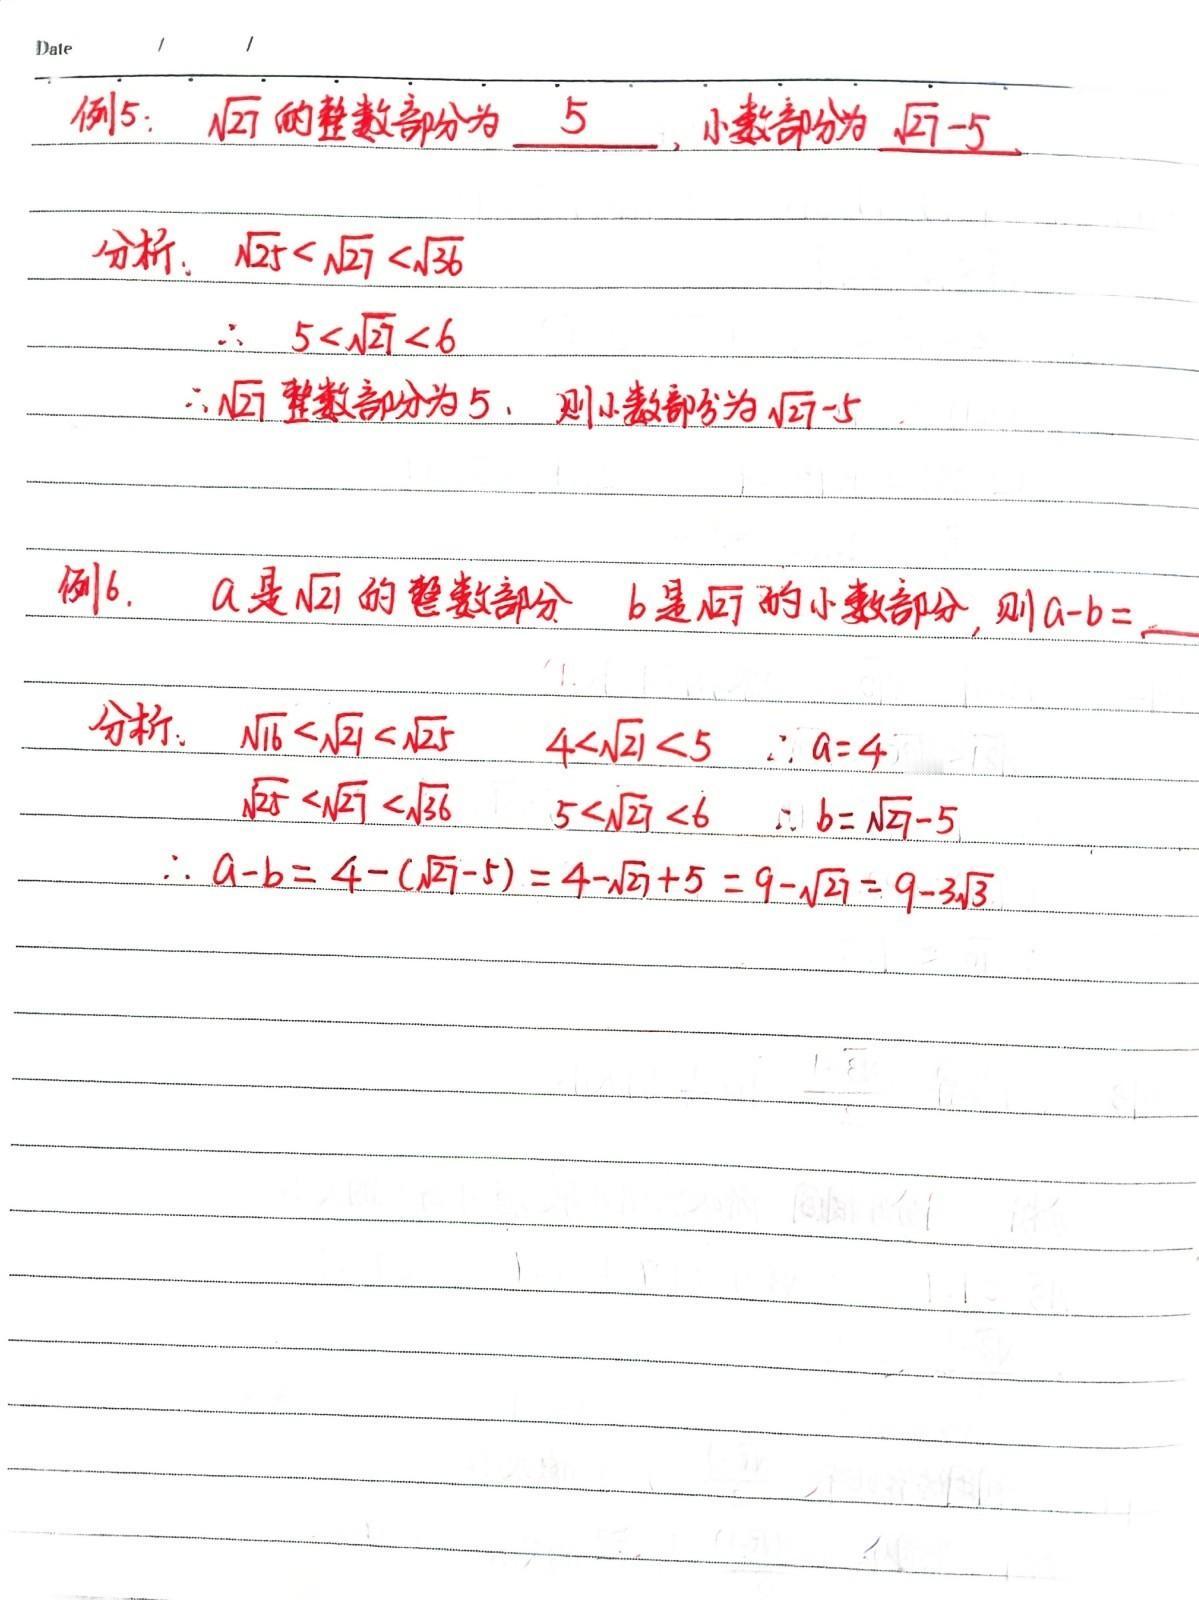 Date / /
例5: √27 的整数部分为 5 , 小数部分为 √27-5
分析: √25 < √27 < √36
∴ 5 < √27 < 6
∴ √27 整数部分为5, 则小数部分为 √27-5
例6. a是√21 的整数部分 b是√27 的小数部分, 则a-b= __
分析: √16 < √21 < √25 4 < √21 < 5 ∴ a=4
√25 < √27 < √36 5 < √27 < 6 ∴ b=√27-5
∴ a-b = 4-(√27-5) = 4-√27+5 = 9-√27 = 9-3√3